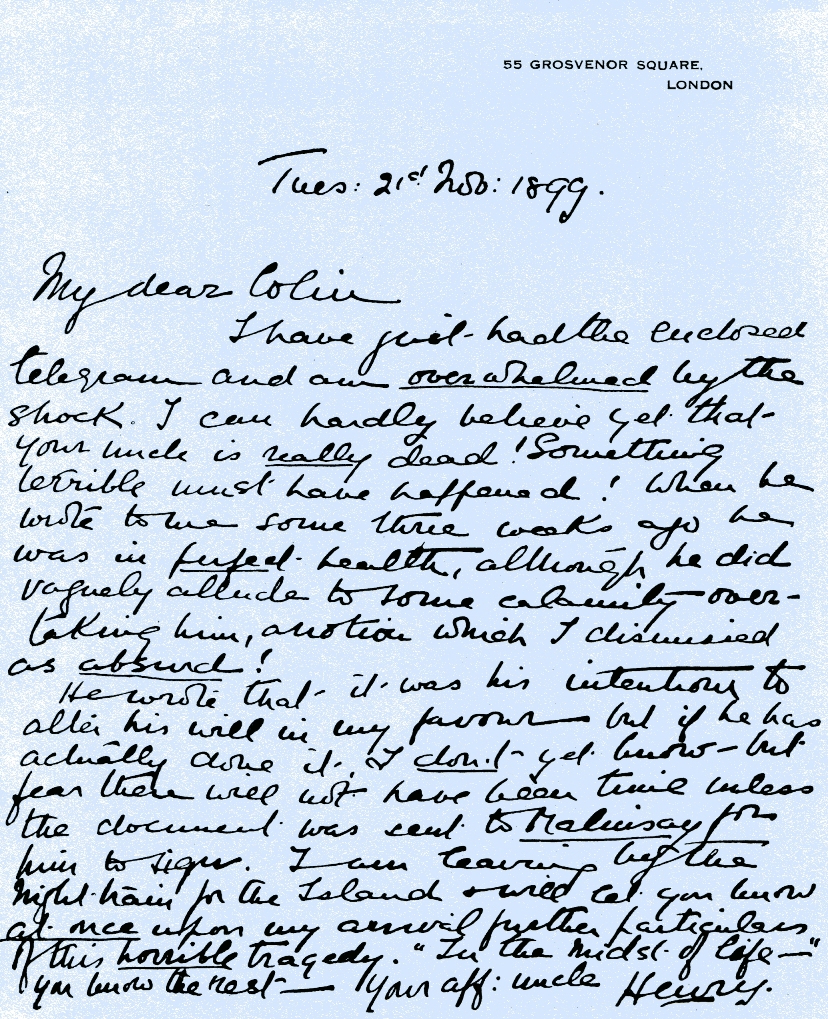 55 GROSVENOR SQUARE,
LONDON
Tues: 21st Nov: 1899.
My dear Colin
I have just had the enclosed
telegram and am overwhelmed by the
shock. I can hardly believe yet that
your uncle is really dead! Something
terrible must have happened! When he
wrote to me some three weeks ago he
was in perfect health, although he did
vaguely allude to some calamity over-
taking him, a notion which I dismissed
as absurd!
He wrote that it was his intention to
alter his will in my favour but if he has
actually done it, I don't yet know – but
fear there will not have been time unless
the document was sent to Malinsay for
him to sign. I am leaving by the
night train for the Island & will let you know
at once upon my arrival further particulars
of this horrible tragedy. "In the midst of life—"
you know the rest — Your aff: uncle Henry.